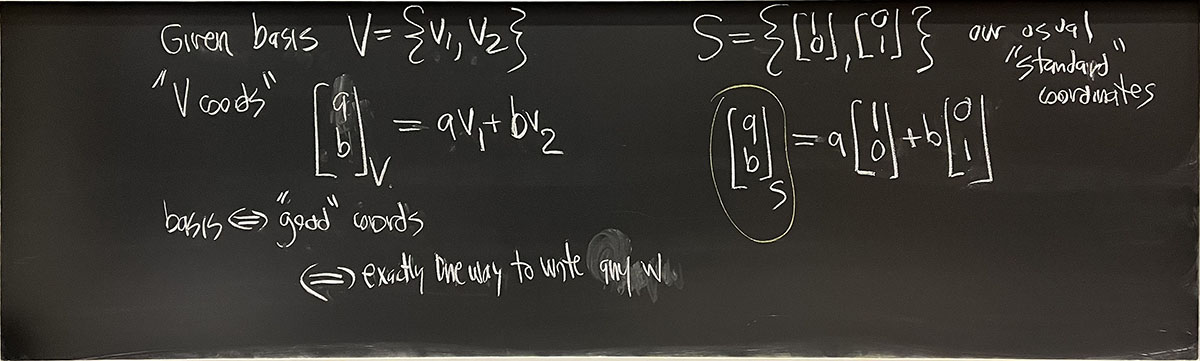 Given basis V = {v₁, v₂}
"V coords"
[a b]_V = av₁ + bv₂
basis ⇔ "good" coords
⇔ exactly one way to write any w
S = {[1 0], [0 1]} our usual
"standard"
coordinates
[a b]_S = a[1 0] + b[0 1]